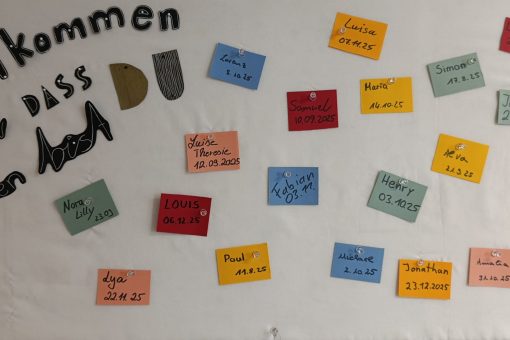 kommen
DASS DU
Luisa
07.11.25
Lorenz
5.10.25
Simon
17.8.25
Maria
14.10.25
Samuel
10.09.2025
Luise
Theresie
12.09.2025
Alva
21.9.25
Fabian
03.11.
Henry
03.10.25
Nora
Lilly 23.09
LOUIS
06.12.25
Paul
11.8.25
Michael
2.10.25
Jonathan
23.12.2025
Amalia
31.10.25
Lya
22.11.25